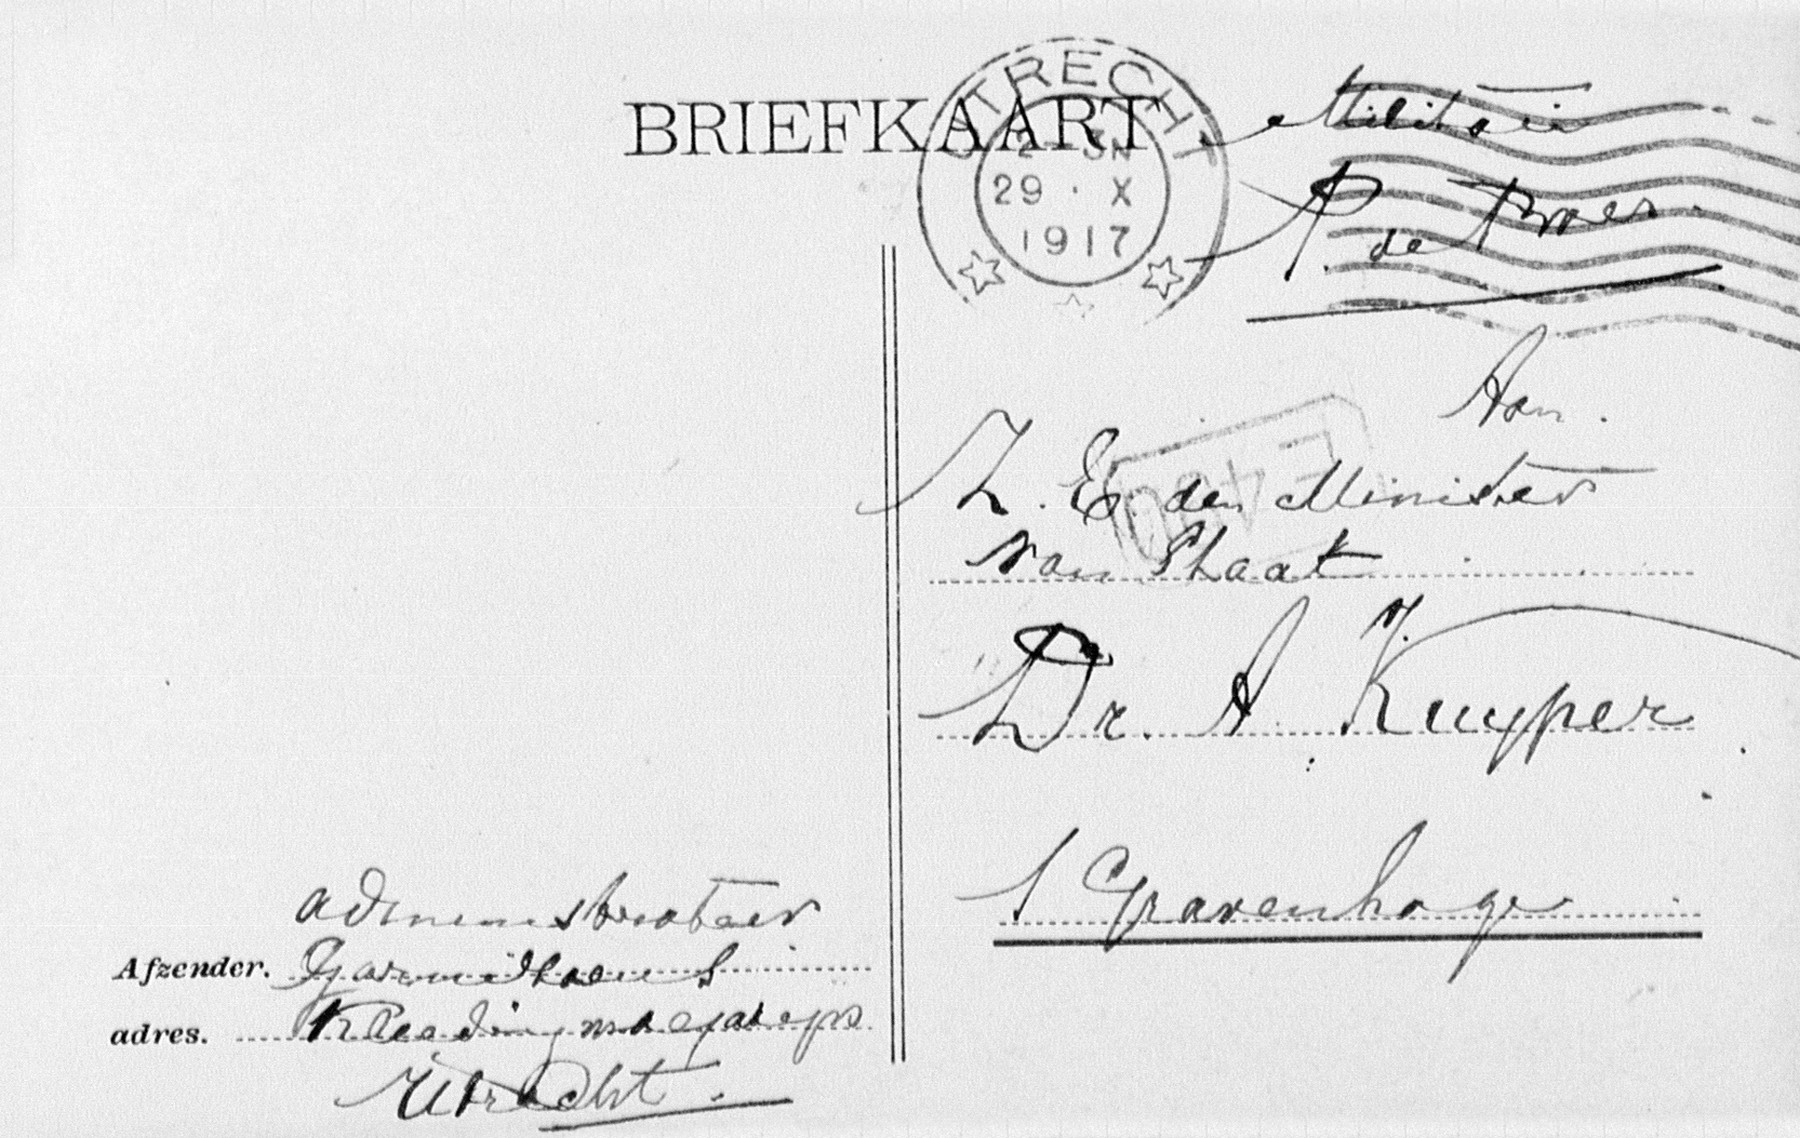 BRIEFKAART
UTRECHT
29 · X
1917
Militair
P. de
Aan.
Z. E. den Minister
van Staat
Dr. A. Kuyper
s Gravenhage
administrateur
Afzender. Garnizoens
adres. Kleedingmagazijn
Utrecht.